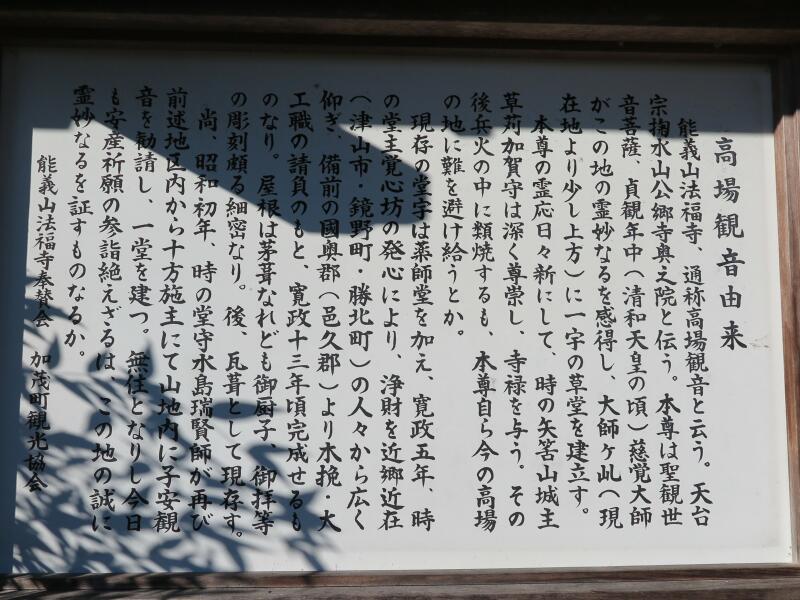 高場観音由来
能義山法福寺、通称高場観音と云う。天台
宗掬水山公郷寺奥之院と伝う。本尊は聖観世
音菩薩、貞観年中(清和天皇の頃)慈覚大師
がこの地の霊妙なるを感得し、大師ヶ乢(現
在地より少し上方)に一宇の草堂を建立す。
本尊の霊応日々新にして、時の矢筈山城主
草苅加賀守は深く尊崇し、寺禄を与う。その
後兵火の中に類焼するも、本尊自ら今の高場
の地に難を避け給うとか。
現存の堂宇は薬師堂を加え、寛政五年、時
の堂主覚心坊の発心により、浄財を近郷近在
(津山市・鏡野町・勝北町)の人々から広く
仰ぎ、備前の國奥郡(邑久郡)より木挽・大
工職の請負のもと、寛政十三年頃完成せるも
のなり。屋根は茅葺なれども御厨子、御拝等
の彫刻頗る細密なり。後、瓦葺として現存す。
尚、昭和初年、時の堂守水島瑞賢師が再び
前述地区内から十方施主にて山地内に子安観
音を勧請し、一堂を建つ。無住となりし今日
も安産祈願の参詣絶えざるは、この地の誠に
霊妙なるを証すものなるか。
能義山法福寺奉賛会 加茂町観光協会